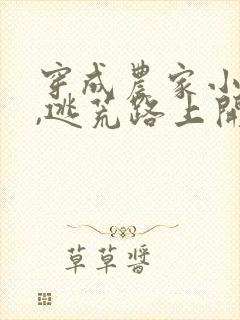 穿成農家小
,逃荒路上開
草草醬